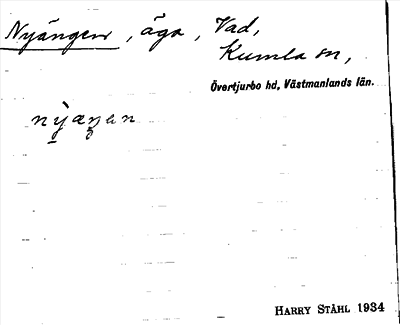 Nyängen, äga, Vad,
Kumla sn,
Övertjurbo hd, Västmanlands län.
nỳæŋen
HARRY STÅHL 1934